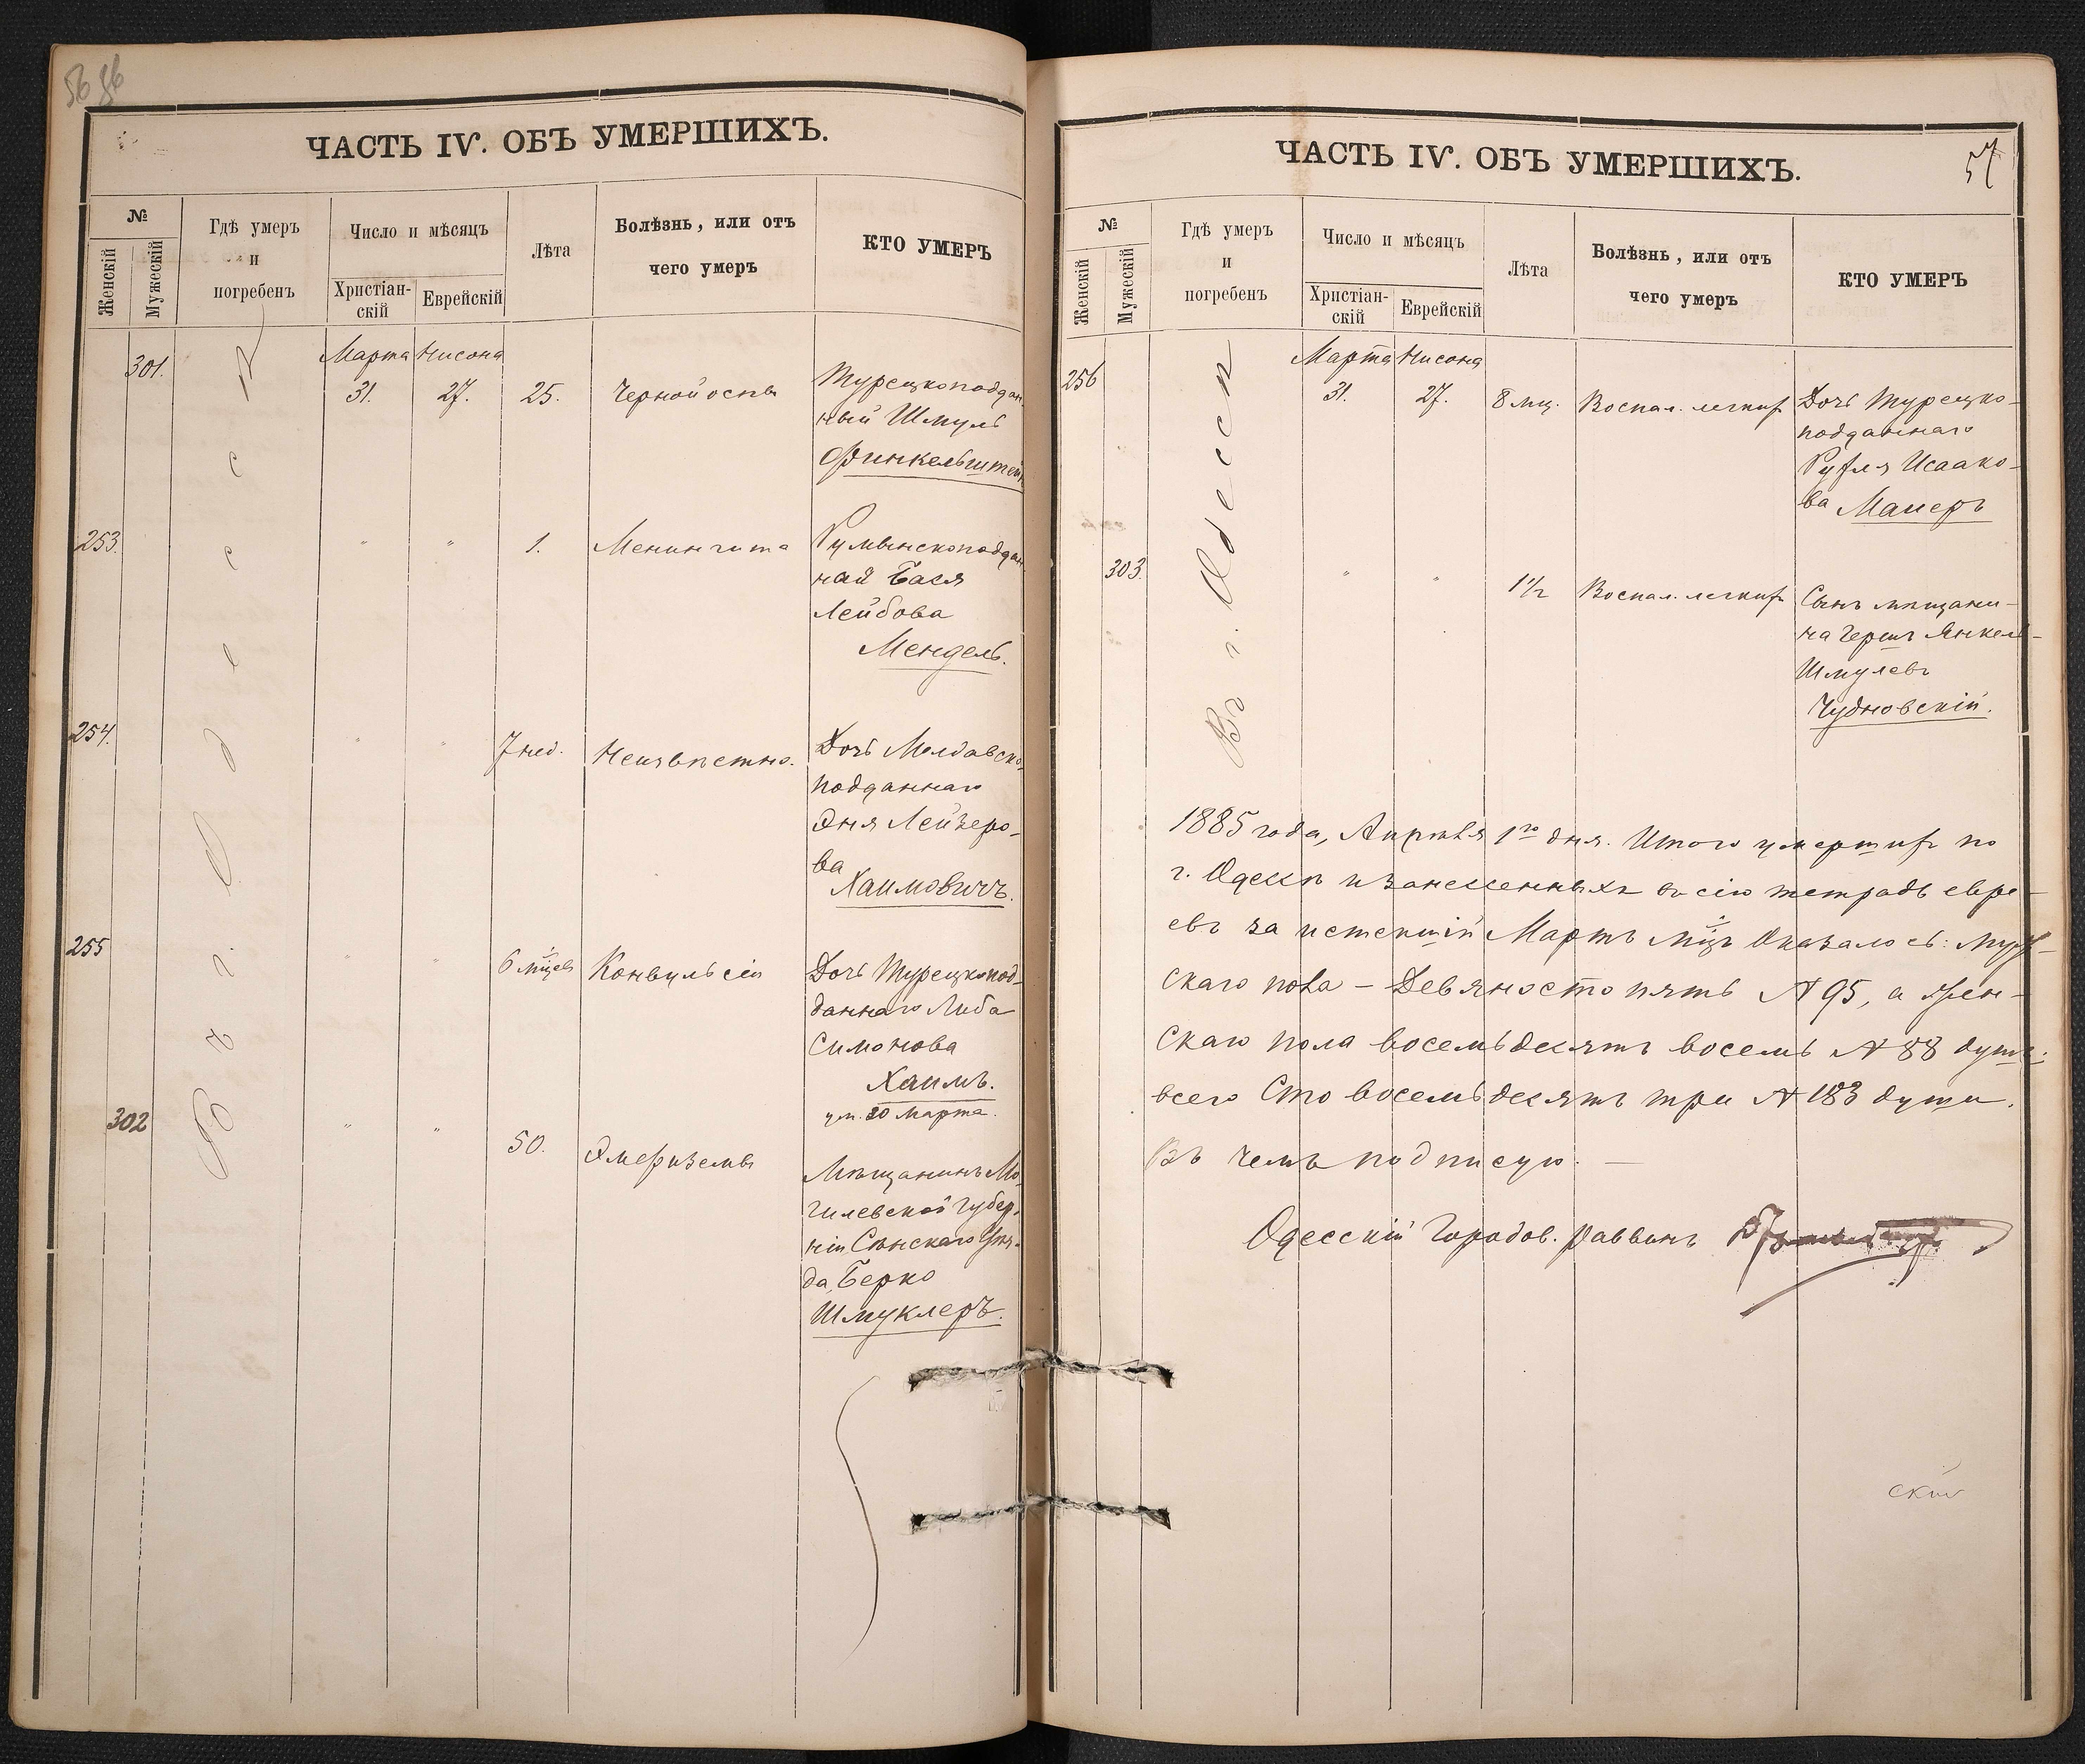 56 56
ЧАСТЬ IV. ОБЪ УМЕРШИХЪ.
№
Женскій
Мужескій
Гдѣ умеръ
и
погребенъ
Число и мѣсяцъ
Христіан-
скій
Еврейскій
Лѣта
Болѣзнь, или отъ
чего умеръ
КТО УМЕРЪ
Въ г. Одессѣ
301.
Марта Нисона
31. 27. 25. Черной оспы
Турецкоподдан
ный Шмуль
Финкельштейн
253. " " 1. Менингита
Румынскоподдан
ная Бася
Лейбова
Мендель.
254. " " 7 нед. Неизвѣстно.
Дочь Молдавско
подданнаго
Эня Лейзеро-
ва
Хаимовичъ.
255 " " 6 мцевъ Конвульсіи
Дочь Турецкопод-
даннаго Либа
Симонова
Хаимъ.
ум. 30 Марта.
302 " " 50. Эмфиземы
Мѣщанинъ Мо
гилевской Губер.
ніи Сѣнскаго Уѣз-
да, Берко
Шмуклеръ.
ЧАСТЬ IV. ОБЪ УМЕРШИХЪ.
57
№
Женскій
Мужескій
Гдѣ умеръ
и
погребенъ
Число и мѣсяцъ
Христіан-
скій
Еврейскій
Лѣта
Болѣзнь, или отъ
чего умеръ
КТО УМЕРЪ
Въ г. Одессѣ
Марта Нисона
256 31. 27. 8 мц. Воспал. легких
Дочь Турецко-
подданнаго
Рухля Исаако-
ва Маиеръ
303. " " 1½ Воспал. легких
Сынъ мѣщани-
на Герш Янкель-
Шмулевъ
Чудновскій.
1885 года, Апрѣля 1го дня. Итого умерших по
г. Одессѣ и занесенныхъ въ сію тетрадь евре-
евъ за истекшій Мартъ мцъ Оказалось: муж-
скаго пола – Девяносто пять № 95, а жен-
скаго пола восемьдесятъ восемь № 88 душъ;
всего Сто восемьдесятъ три № 183 души.
Въ чемъ подписую. —
Одесскій Городов. Раввинъ
скій